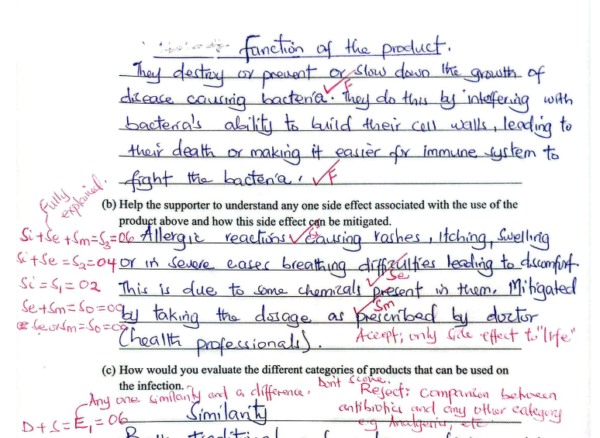 function of the product.
They destroy or prevent or slow down the growth of
disease causing bacteria. They do this by interfering with
bacteria's ability to build their cell walls, leading to
their death or making it easier for immune system to
fight the bacteria. F
Fully explained.
(b) Help the supporter to understand any one side effect associated with the use of the
product above and how this side effect can be mitigated.
Si+Se+Sm=S3=06 Allergic reactions causing rashes, Itching, Swelling
Si+Se=S2=04 or in severe cases breathing difficulties leading to discomfort.
Se
Si=S1=02 This is due to some chemicals present in them. Mitigated
Sm
Se+Sm=S0=00 by taking the dosage as prescribed by doctor
Se or Sm=S0=00 (health professionals). Accept; only side effect to "life"
(c) How would you evaluate the different categories of products that can be used on
the infection. Don't score.
Any one similarity and a difference. Reject: Comparison between
D+S=E1=06 Similarity antibiotics and any other category
eg Analgesics, etc